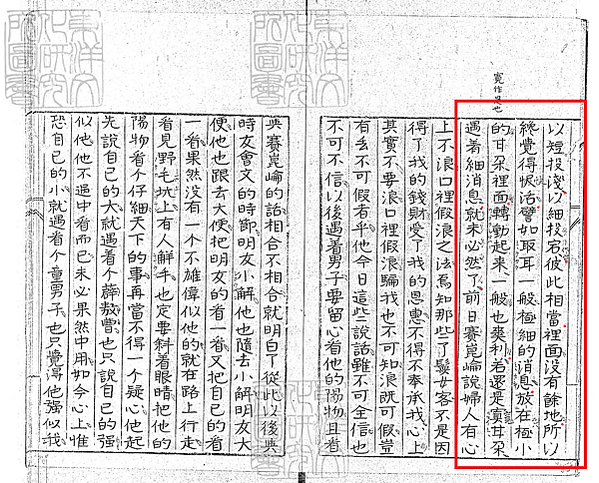 寬作是也
以短投淺以細投窄彼此相當裡面沒有餘地所以
終覺得恢活譬如取耳一般極細的消息放在極小
的耳朵裡面轉動起來一般也爽利若還是寬耳朵
遇着細消息就未必然了前日賽崑崙說婦人有心
上不浪口裡假浪之法焉知那些丫鬟女客不是因
得了我的錢財愛了我的恩惠不得不奉承我心上
其實不要浪口裡假浪騙我也不可知浪既可假豈
有丟不可假者乎他今日這些說話雖不可全信也
不可不信以後遇着男子要留心看他的陽物且看
與賽崑崙的話相合不相合就明白了從此以後與
時友會文的時節朋友小解他也隨去小解朋友大
便他也跟去大便把朋友的看一看又把自己的看
一看果然沒有一个不雄偉似他的就在路上行走
看見野毛坑上有人解手也定要斜着眼睛把他的
陽物看个仔細天下的事再當不得一个疑心他起
先說自己的大就遇着个薛敖曹也只說自己的强
似他他不過中看而已未必果然中用如今心上惟
恐自己的小就遇着个童男子也只覺得他强似我